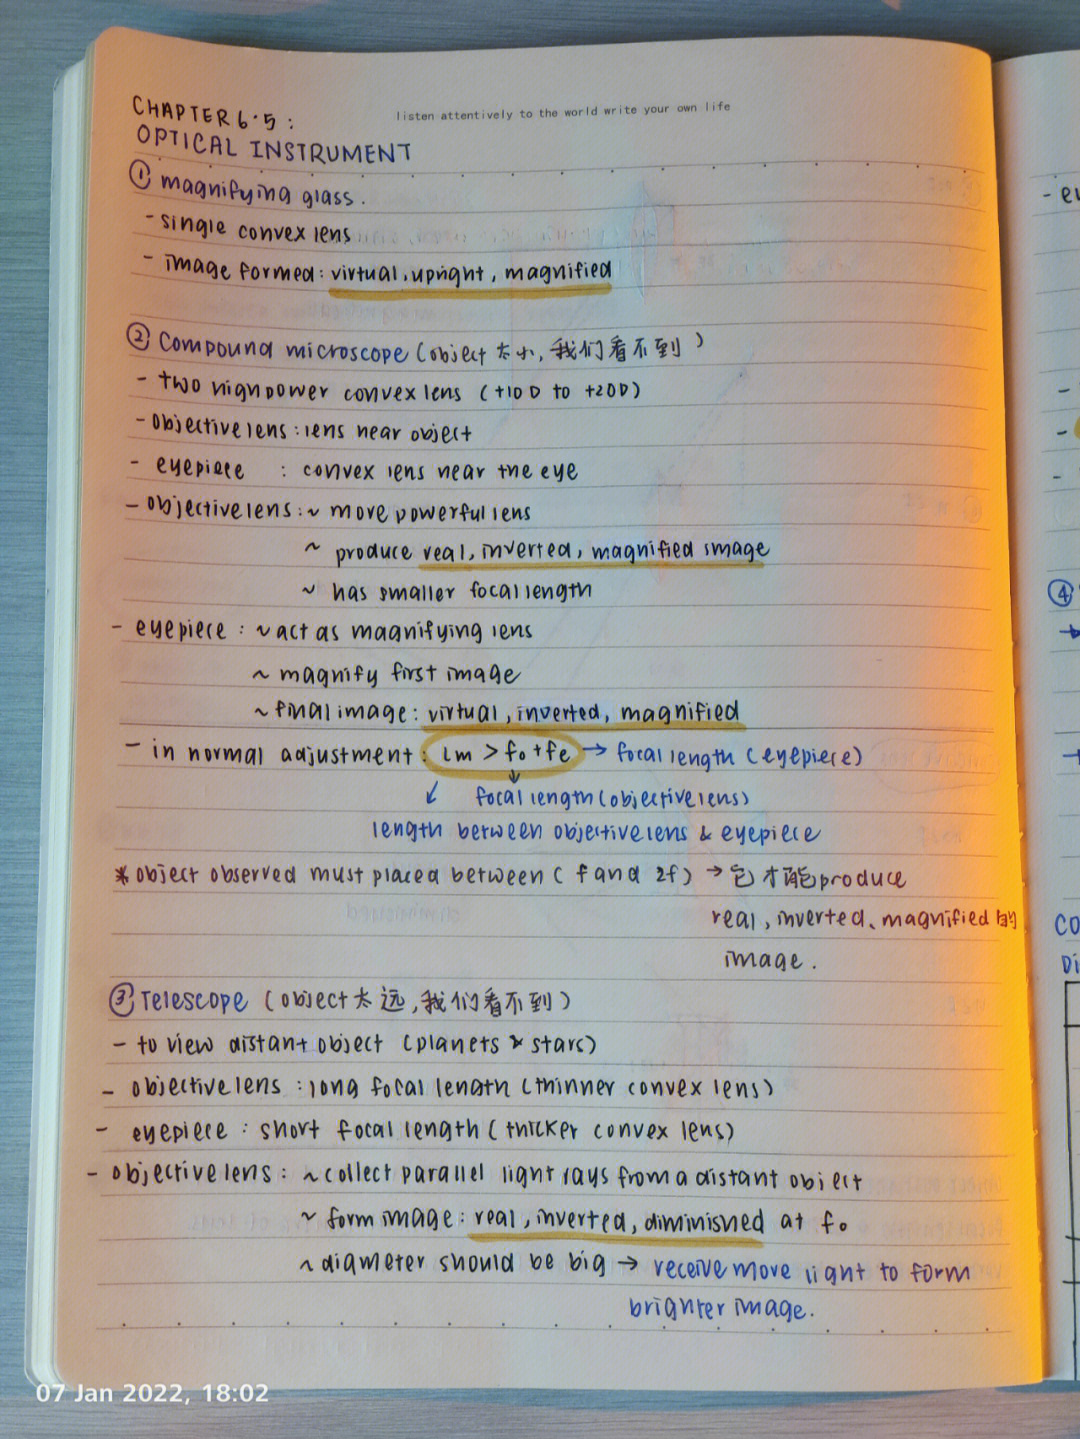 listen attentively to the world write your own life
CHAPTER 6.5 :
OPTICAL INSTRUMENT
① magnifying glass.
- single convex lens
- image formed : virtual, upright, magnified
② Compound microscope (object 太小, 我们看不到)
- two high power convex lens (+10D to +20D)
- objective lens : lens near object
- eyepiece : convex lens near the eye
- objective lens : ~ more powerful lens
~ produce real, inverted, magnified image
~ has smaller focal length
- eyepiece : ~ act as magnifying lens
~ magnify first image
~ final image : virtual, inverted, magnified
- in normal adjustment : Lm > fo + fe → focal length (eyepiece)
↙ ↓ focal length (objective lens)
length between objective lens & eyepiece
* object observed must placed between ( f and 2f) → 它才能 produce
real, inverted, magnified 的
image.
③ Telescope (object 太远, 我们看不到)
- to view distant object (planets & stars)
- objective lens : long focal length (thinner convex lens)
- eyepiece : short focal length (thicker convex lens)
- objective lens : ~ collect parallel light rays from a distant object
~ form image : real, inverted, diminished at fo
~ diameter should be big → receive more light to form
brighter image.
④
07 Jan 2022, 18:02